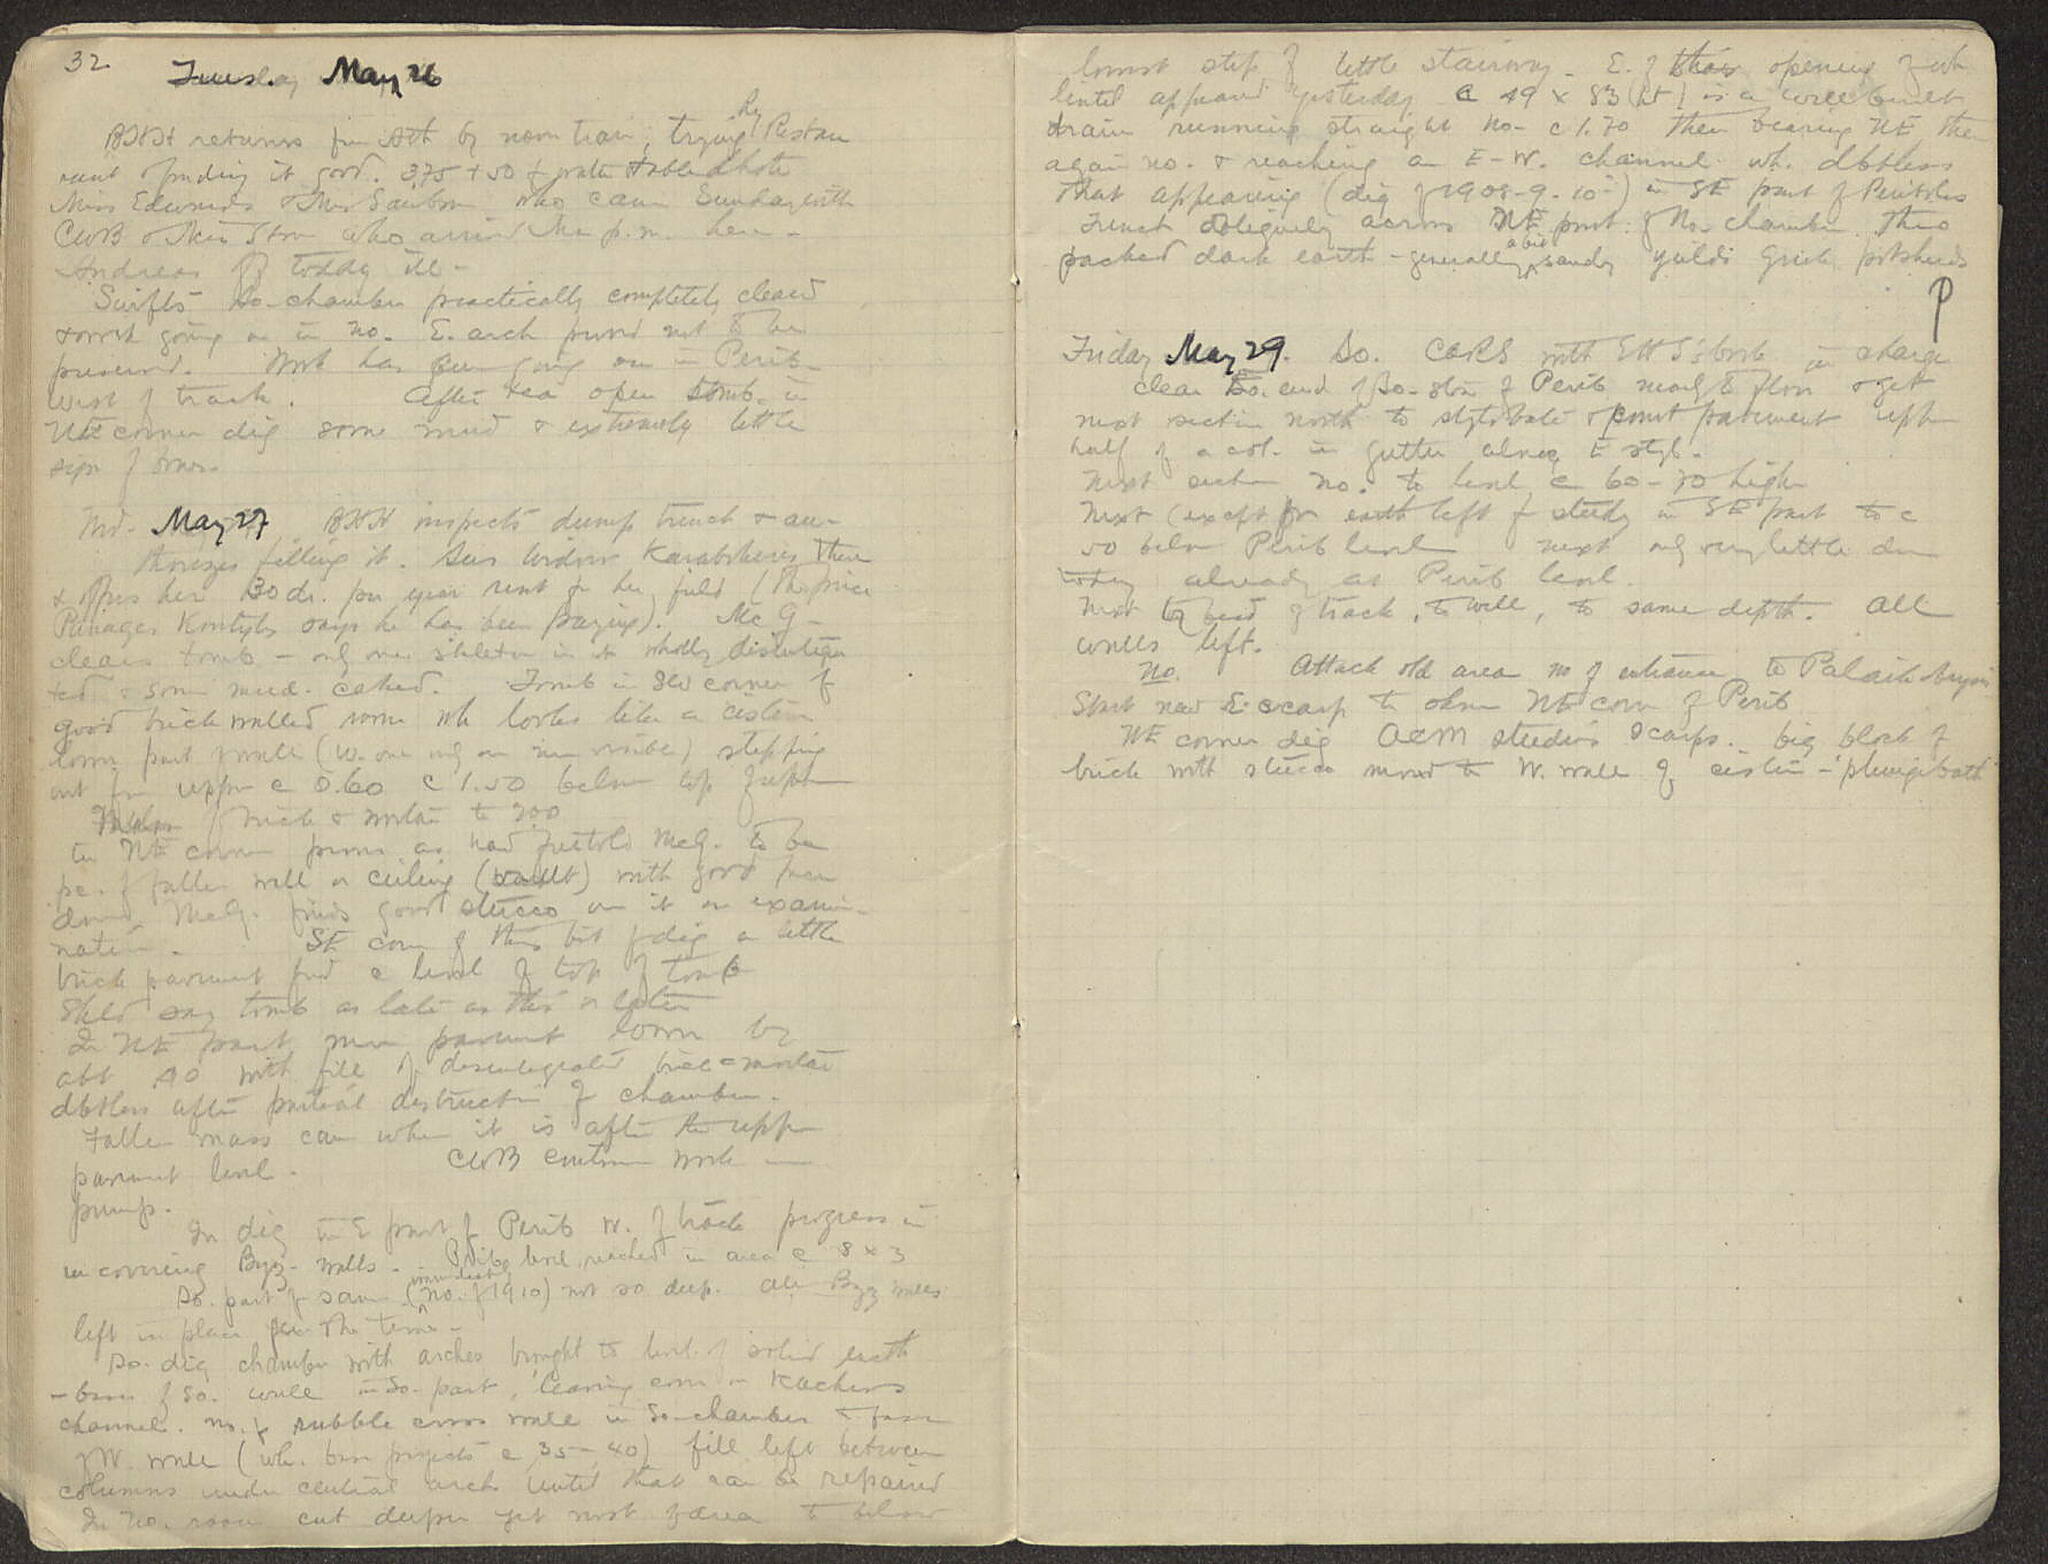 32
Tuesday May 26
BHH returns fm Ath by noon train, trying Ry Restau
rant & finding it good. 375 + 50 f water table d'hote
Miss Edwards & Mrs who came Sunday with
CWB & Miss who arrived the p.m. here -
Andreas off today ill -
Swift's So. chamber practically completely cleared
& work going on in no. E. arch proved not to be
preserved. Work has been going on in Perib.
west of track. After tea open tomb in
NE corner dig some mud & extremely little
sign of bones.
Wd. May 27 BHH inspects dump trench & au-
thorizes filling it. Sees widow there
& offers her 30 dr. per year rent for her field (the price
Panages says he has been paying). McG -
clears tomb - only one skeleton in it wholly disintegra
ted & some mud. caked. Tomb in SW corner of
good brick walled room wh looks like a cistern
lower part of wall (W. one only one now visible) stepping
out fm upper c 0.60 c 1.50 below top of upper
of brick & mortar to 200
in NE corner proves as had foretold McG. to be
pc. of fallen wall or ceiling (vault) with good face
down. McG. finds good stucco on it on exami-
nation. SE corn of this bit of dig a little
brick pavement fnd c level of top of tomb
Shld say tomb as late as this or later
In NE part, more pavement lower by
abt 40 with fill of desintegrated brick & mortar
dbtless after partial destruction of chamber.
Fallen mass came where it is after the upper
pavement level. CWB continues work -
pump.
In dig in E part of Perib W. of track progress in
uncovering Byz. walls. - Perib level reached in area c 8 x 3
So. part of same (immediately no. of 1910) not so deep. All Byz walls
left in place for the time -
So. dig chamber with arches brought to level of solid earth
- base of so. wall in So. part, leaving corn in Kachros
channel. No. of rubble cross wall in So. chamber & face
of W. wall (wh. base projects c 35-40) fill left between
columns under central arch until that can be repaired
In No. room cut deeper yet most of area to below
lowest step of little stairway. E. of this opening of wh
lintel appeared yesterday c 49 x 83 (ht) is a well built
drain running straight no. c 1.70 then bearing NE, then
again no. & reaching an E-W. channel wh. dbtless
that appearing (dig of 1908-9-10) in SE part of Peribolos
Trench obliquely across NE part of No. chamber thro
packed dark earth - generally a bit sandy yields Greek potsherds
P
Friday May 29. So. CARS with EHS's book in charge
clear So. end of So. stoa of Perib nearly to floor & get
next section north to stylobate & court pavement upper
half of a col. in gutter along E styl.
Next section No. to level c 60-70 higher
Next (except for earth left for study in SE part to c
50 below Perib level next only very little done
today already at Perib level.
Next to bend of track, to well, to same depth. All
walls left.
No. Attack old area no of entrance to Palaik
Start new E. scarp to show NE corn of Perib
NE corner dig ACM studies scarps. - big block of
brick with stucco moved to W. wall of cistern - 'plunge bath'